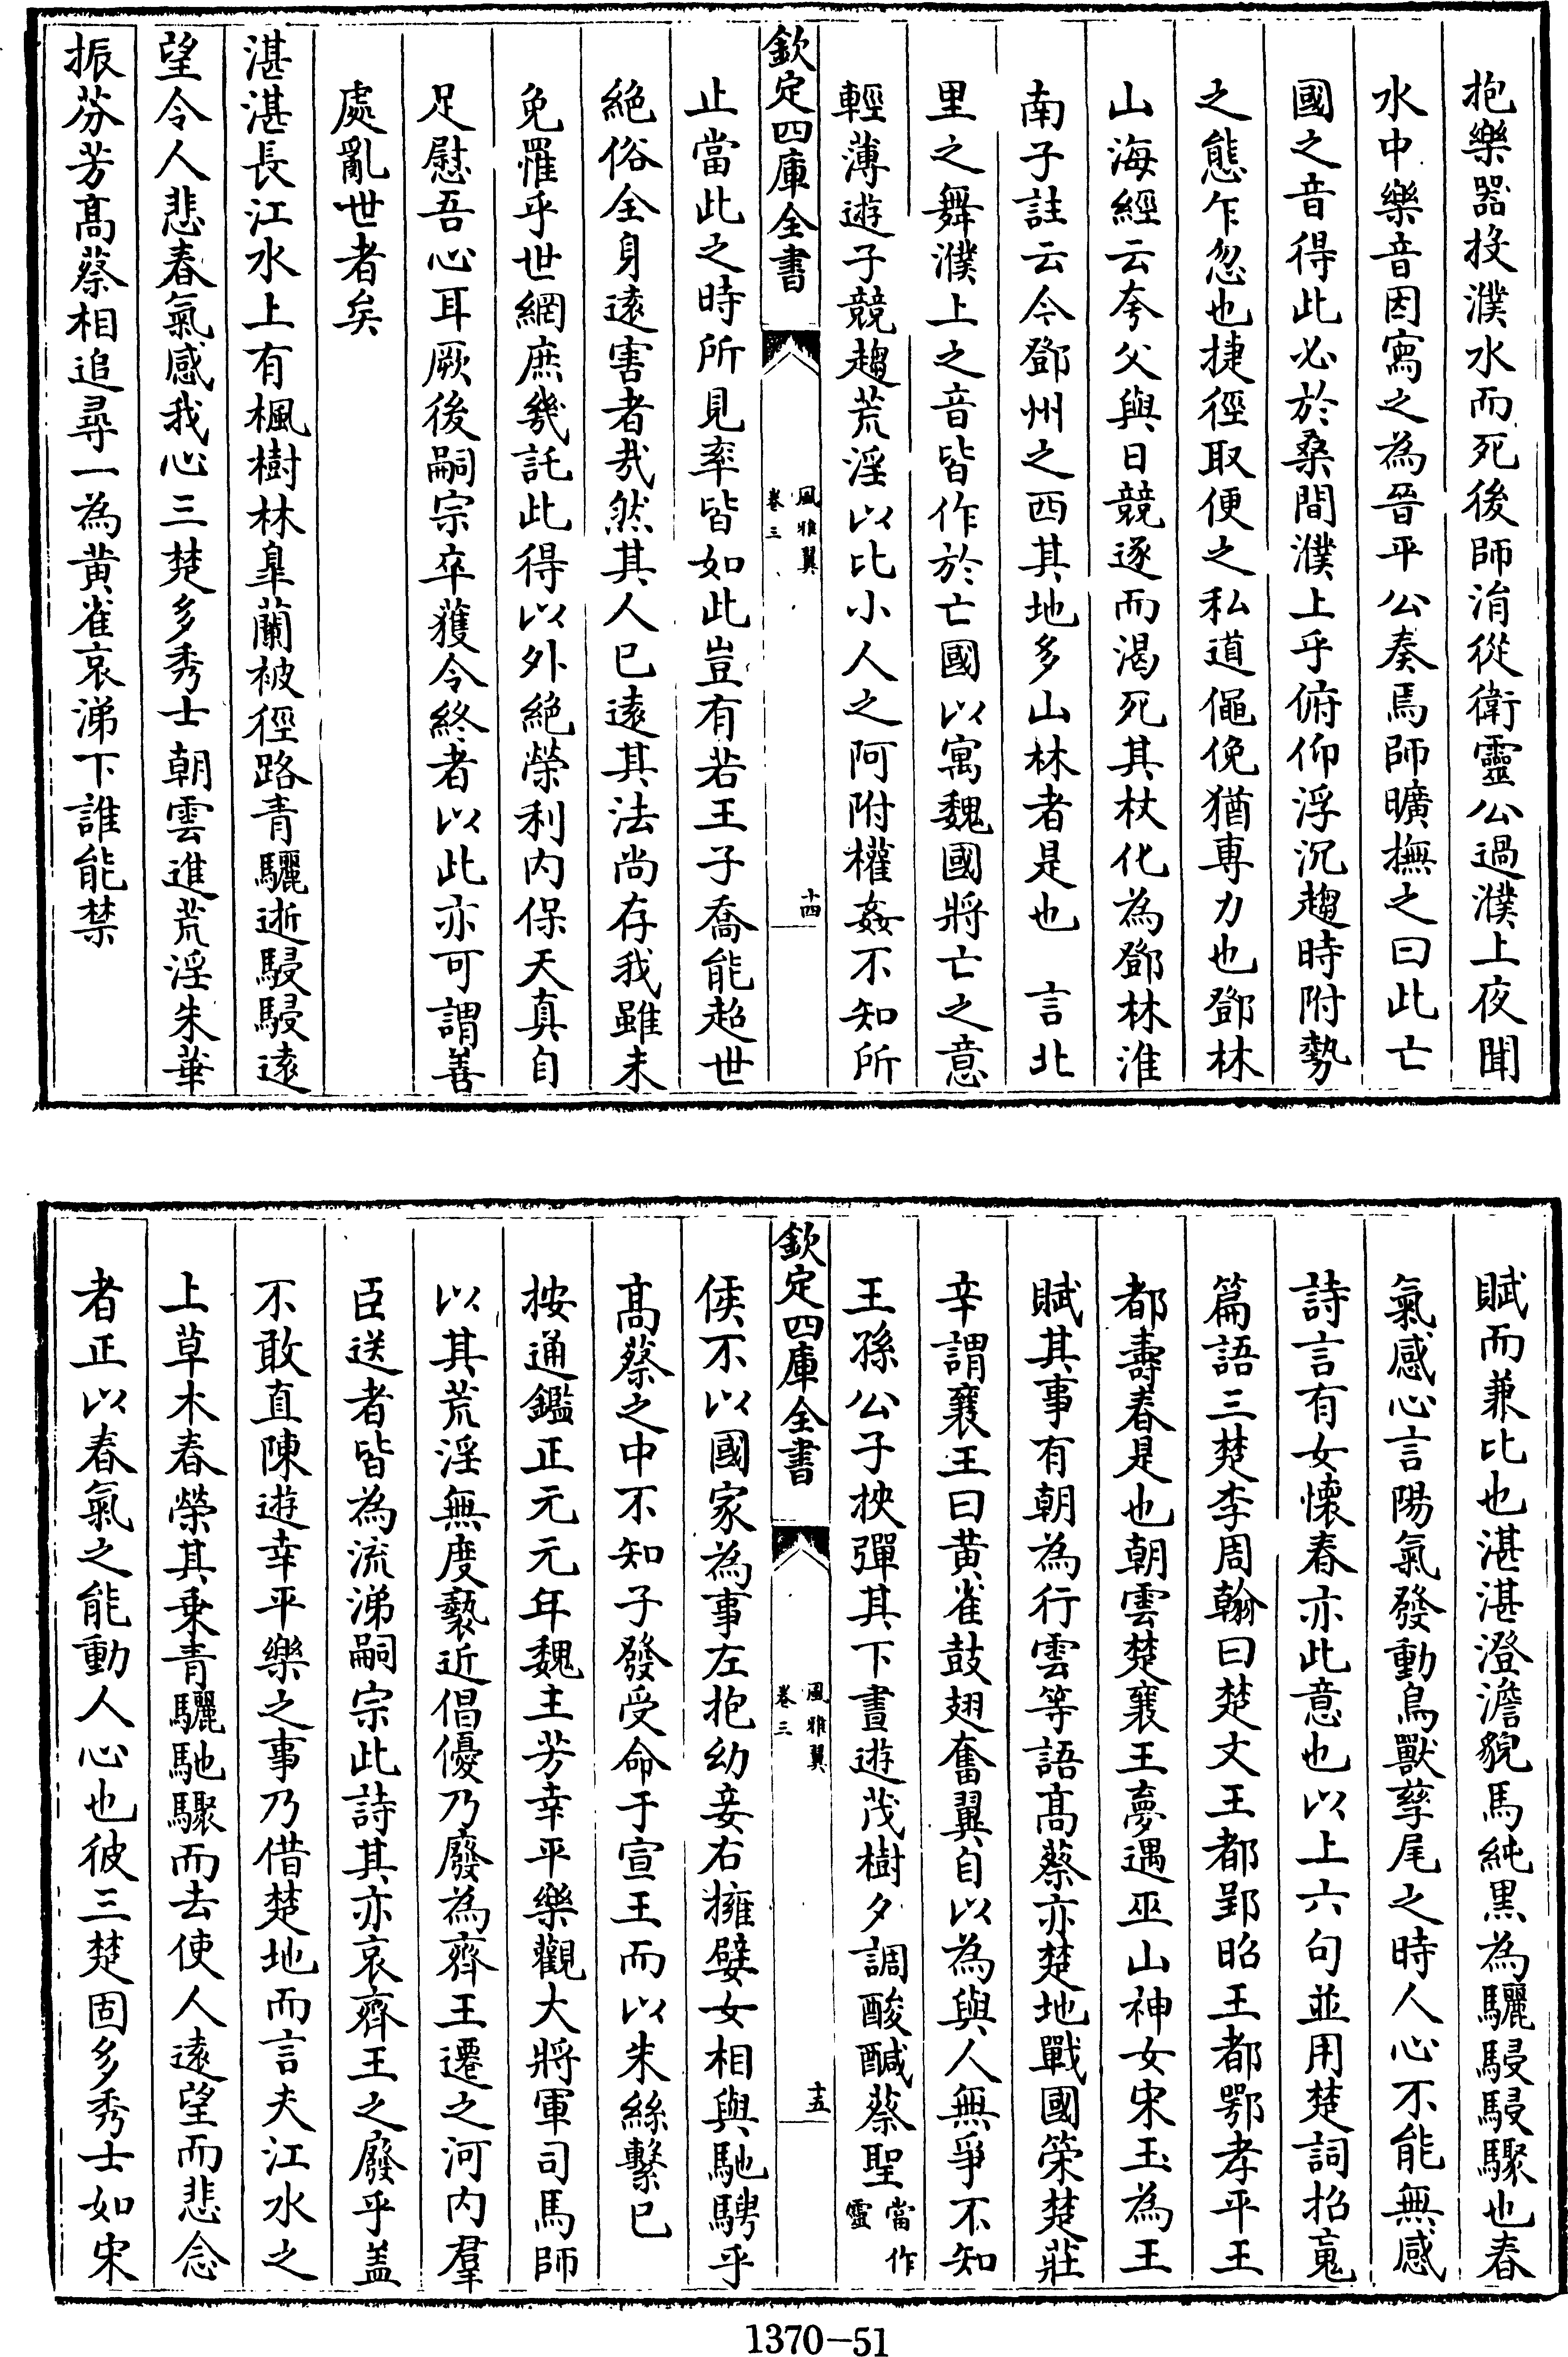 抱樂器投濮水而死後師涓從衛靈公過濮上夜聞
水中樂音因寫之為晉平公奏焉師曠撫之曰此亡
國之音得此必於桑間濮上乎俯仰浮沉趨時附勢
之態乍忽也捷徑取便之私道僶俛猶專力也鄧林
山海經云夸父與日競逐而渴死其杖化為鄧林淮
南子註云今鄧州之西其地多山林者是也　言北
里之舞濮上之音皆作於亡國以寓魏國將亡之意
輕薄遊子競趨荒淫以比小人之阿附權姦不知所
欽定四庫全書
風雅翼
卷三
十四
止當此之時所見率皆如此豈有若王子喬能超世
絶俗全身遠害者㢤然其人已遠其法尚存我雖未
免罹乎世網庶幾託此得以外絶榮利内保天真自
足慰吾心耳厥後嗣宗卒獲令終者以此亦可謂善
處亂世者矣
湛湛長江水上有楓樹林臯蘭被徑路青驪逝駸駸遠
望令人悲春氣感我心三楚多秀士朝雲進荒淫朱華
振芬芳髙蔡相追尋一為黄雀哀涕下誰能禁
賦而兼比也湛湛澄澹貌馬純黒為驪駸駸驟也春
氣感心言陽氣發動鳥獸孳尾之時人心不能無感
詩言有女懐春亦此意也以上六句並用楚詞招䰟
篇語三楚李周翰曰楚文王都郢昭王都鄂孝平王
都壽春是也朝雲楚襄王夢遇巫山神女宋玉為王
賦其事有朝為行雲等語髙蔡亦楚地戰國策楚莊
辛謂襄王曰黄雀鼓翅奮翼自以為與人無爭不知
王孫公子挾彈其下晝遊茂樹夕調酸鹹蔡聖當作靈
欽定四庫全書
風雅翼
卷三
十五
侯不以國家為事左抱幼妾右擁嬖女相與馳騁乎
髙蔡之中不知子發受命于宣王而以朱絲繫已
按通鑑正元元年魏主芳幸平樂觀大將軍司馬師
以其荒淫無度褻近倡優乃廢為齊王遷之河内羣
臣送者皆為流涕嗣宗此詩其亦哀齊王之廢乎盖
不敢直陳遊幸平樂之事乃借楚地而言夫江水之
上草木春榮其乗青驪馳驟而去使人遠望而悲念
者正以春氣之能動人心也彼三楚固多秀士如宋
1370-51